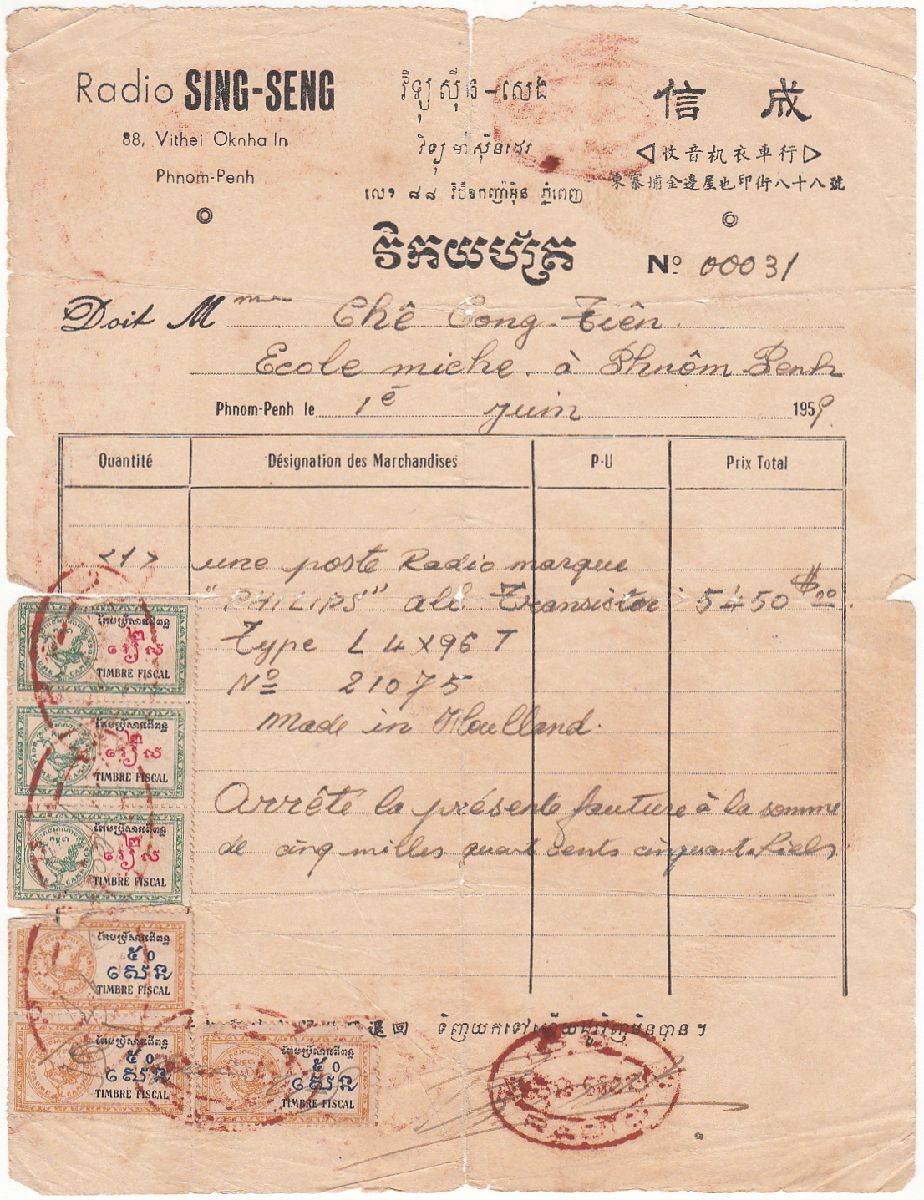 Radio SING-SENG
88, Vithei Oknha In
Phnom-Penh
វិទ្យុ ស៊ីន-សេង
វិទ្យុ ម៉ាស៊ីនដេរ
លេខ ៨៨ វិថីឧកញ៉ាអ៊ិន ភ្នំពេញ
信 成
收音机衣車行
柬寨埔金邊屋也印街八十八號
វិកយប័ត្រ
Nº 00031
Doit Mme Chê Cong-Tiên.
Ecole miche. à Phnôm Penh
Phnom-Penh le 1é juin 1959.
Quantité Désignation des Marchandises P-U Prix Total
<1> une poste Radio marque
"PHILIPS" alt Transistor 5450$00.
Type L4X96T
Nº 21075
Made in Houlland.
Arrêté la présente fauture à la somme
de cinq milles quart cents cinquant Riels
តែមប្រិ៍សារពើពន្ធ
២
រៀល
TIMBRE FISCAL
តែមប្រិ៍សារពើពន្ធ
២
រៀល
TIMBRE FISCAL
តែមប្រិ៍សារពើពន្ធ
២
រៀល
TIMBRE FISCAL
តែមប្រិ៍សារពើពន្ធ
៥០
សេន
TIMBRE FISCAL
តែមប្រិ៍សារពើពន្ធ
៥០
សេន
TIMBRE FISCAL
តែមប្រិ៍សារពើពន្ធ
៥០
សេន
TIMBRE FISCAL
退回 ទិញយកទៅហើយដូរវិញមិនបាន។